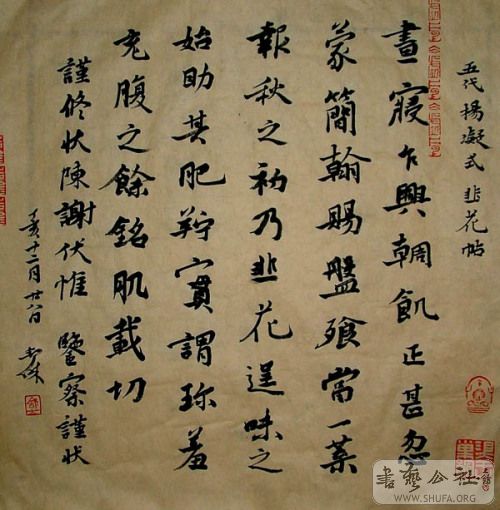 五代揚凝式韭花帖
晝寢乍興輖飢正甚忽
蒙簡翰賜盤飱當一葉
報秋之初乃韭花逞味之
始助其肥羜實謂珍羞
充腹之餘銘肌載切
謹修狀陳謝伏惟 鑒察謹狀
丁亥十二月廿八日
書藝公社
WWW.SHUFA.ORG